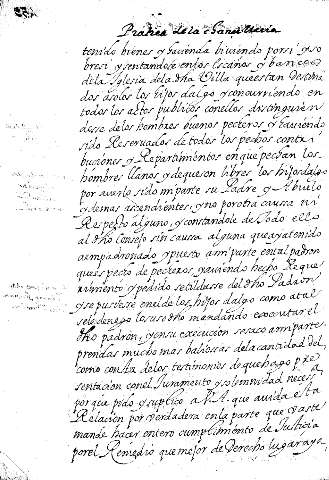 Pratica de la Chancilleria
tenido bienes y hacienda biviendo por si y so
bre si y sentandose en los escaños y bancos
de la Iglesia de la dha Villa que estan destina
dos a solo los hijos dalgo y concurriendo en
todos los actos publicos con ellos distinguien
dose de los hombres buenos pecheros y haviendo
sido Reservados de todos los pechos contri
buziones y Repartimientos en que pechan los
hombres llanos y de que son libres los hijos dalgo
por averlo sido mi parte su Padre y Abuelo
y demas ascendientes, y no por otra causa ni
Respecto alguno, y constandole de todo ello
al dho Consejo sin causa alguna que aya tenido
a empadronado y puesto a mi parte en el padron
que es pecto de pecheros, y aviendo hecho Reque
rimiento y pedido se tildase del dho Padron
y se pusiese en el de los hijos dalgo como a tal
se le denego la suso dho mandando executar el
dho padron, y en su execucion se saco a mi parte
prendas mucho mas baliosas de la cantidad del
como consta de los testimonios de que hago pre
sentacion con el Juramento y solemnidad necesa
por que pido y suplico a V.A. que avida esta
Relacion por verdadera en la parte que vaste
mande hacer entero cumplimiento de Justicia
por el Remedio que mejor de Derecho lugar aya